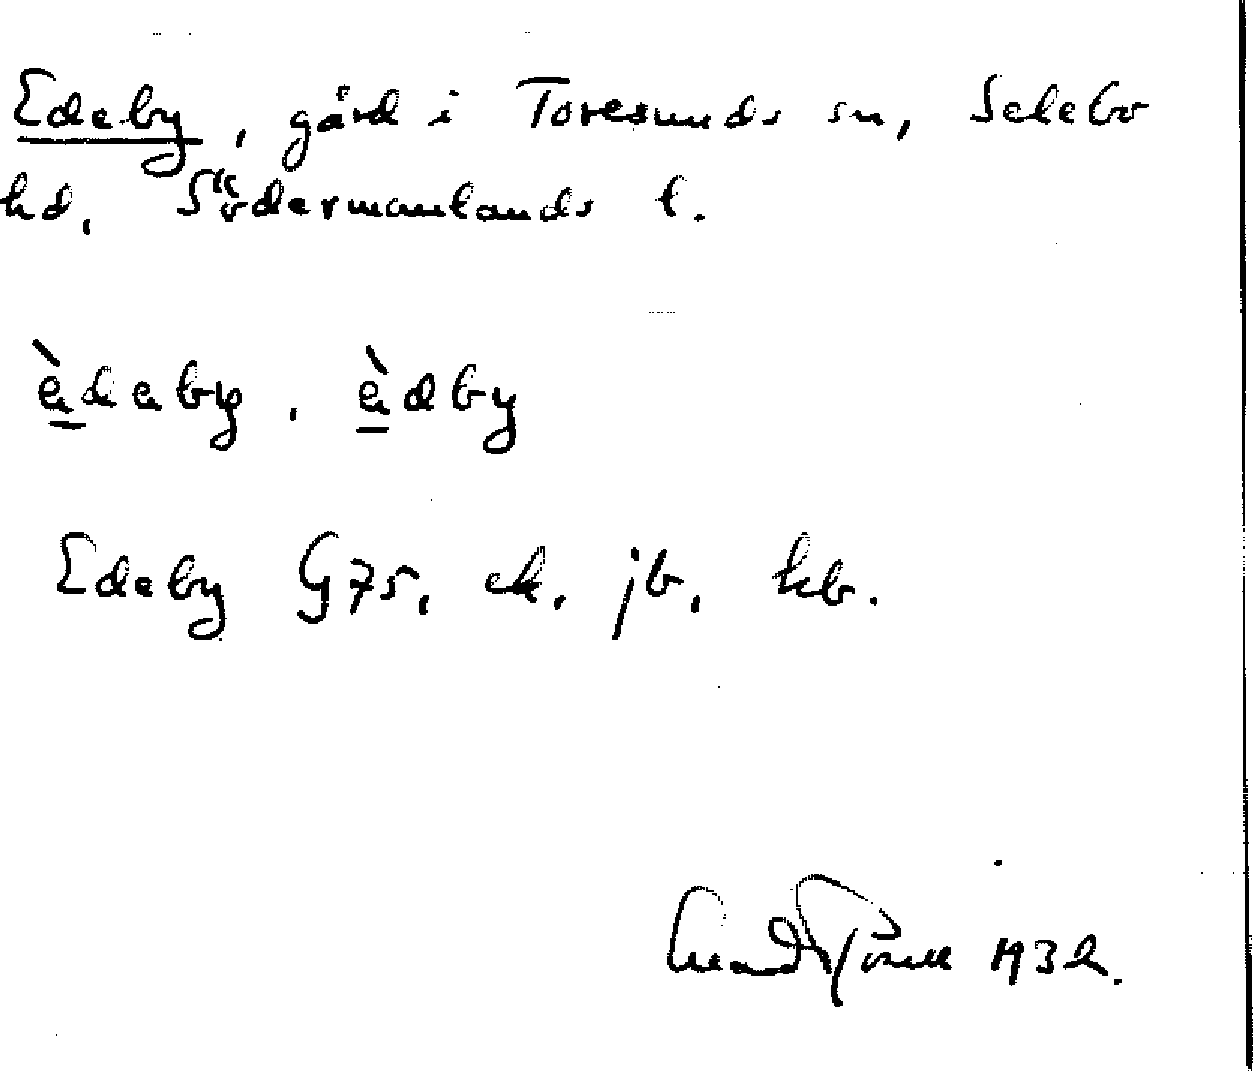 Edeby, gård i Toresunds sn, Selebo
hd, Södermanlands l.
èdeby. èdby
Edeby G75, ek, jb, hb.
1932.